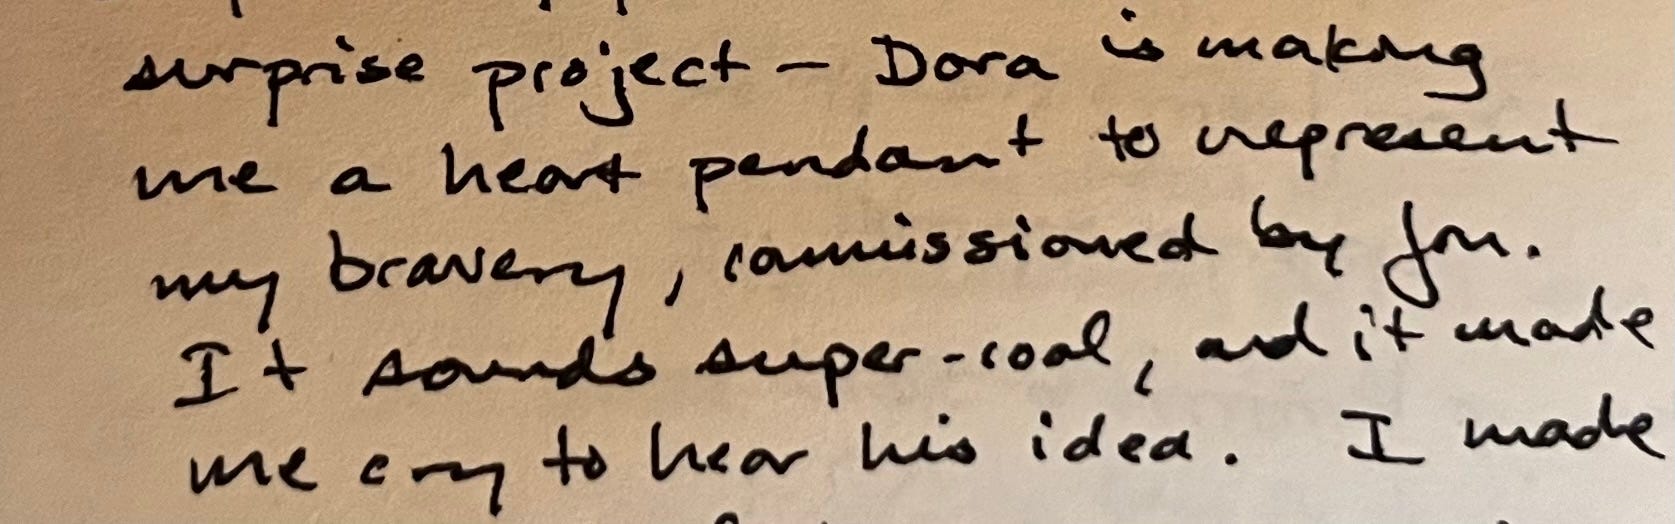 surprise project – Dora is making
me a heart pendant to represent
my bravery, commissioned by Jon.
It sounds super-cool, and it made
me cry to hear his idea. I made